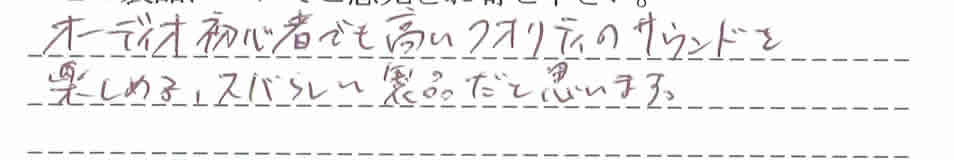 オーディオ初心者でも高いクオリティのサウンドを
楽しめる、スバらしい製品だと思います。